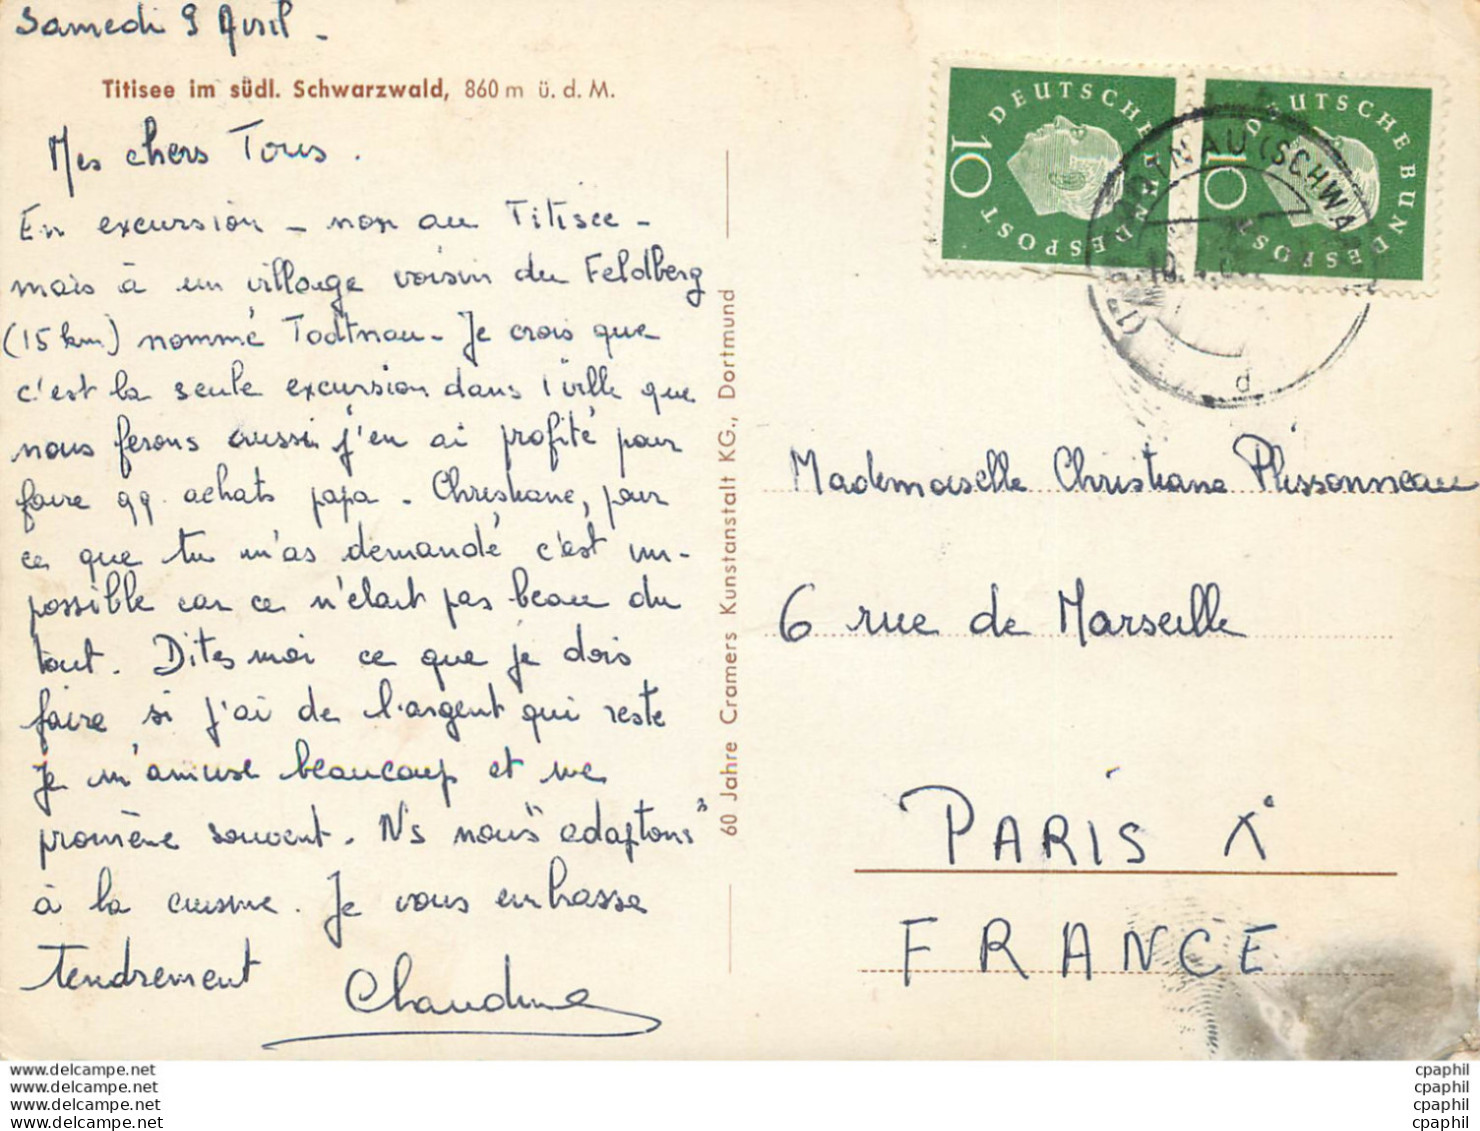 Samedi 9 Avril -
Titisee im südl. Schwarzwald, 860 m ü. d. M.
Mes chers Tous.
En excursion - non au Titisee -
mais à un village voisin du Feldberg
(15 km) nommé Todtnau - Je crois que
c'est la seule excursion dans 1 ville que
nous ferons aussi j'en ai profité pour
faire qq. achats papa - Christiane, pour
ce que tu m'as demandé c'est im-
possible car ce n'était pas beau du
tout. Dites moi ce que je dois
faire si j'ai de l'argent qui reste
Je m'amuse beaucoup et me
promène souvent. Ns nous "adaptons"
à la cuisine. Je vous embrasse
tendrement
Claudine
60 Jahre Cramers Kunstanstalt KG., Dortmund
DEUTSCHE BUNDESPOST
10
DEUTSCHE BUNDESPOST
10
TODTNAU (SCHWARZW
d
Mademoiselle Christiane Plissonneau
6 rue de Marseille
PARIS Xe
FRANCE
www.delcampe.net
www.delcampe.net
www.delcampe.net
www.delcampe.net
cpaphil
cpaphil
cpaphil
cpaphil